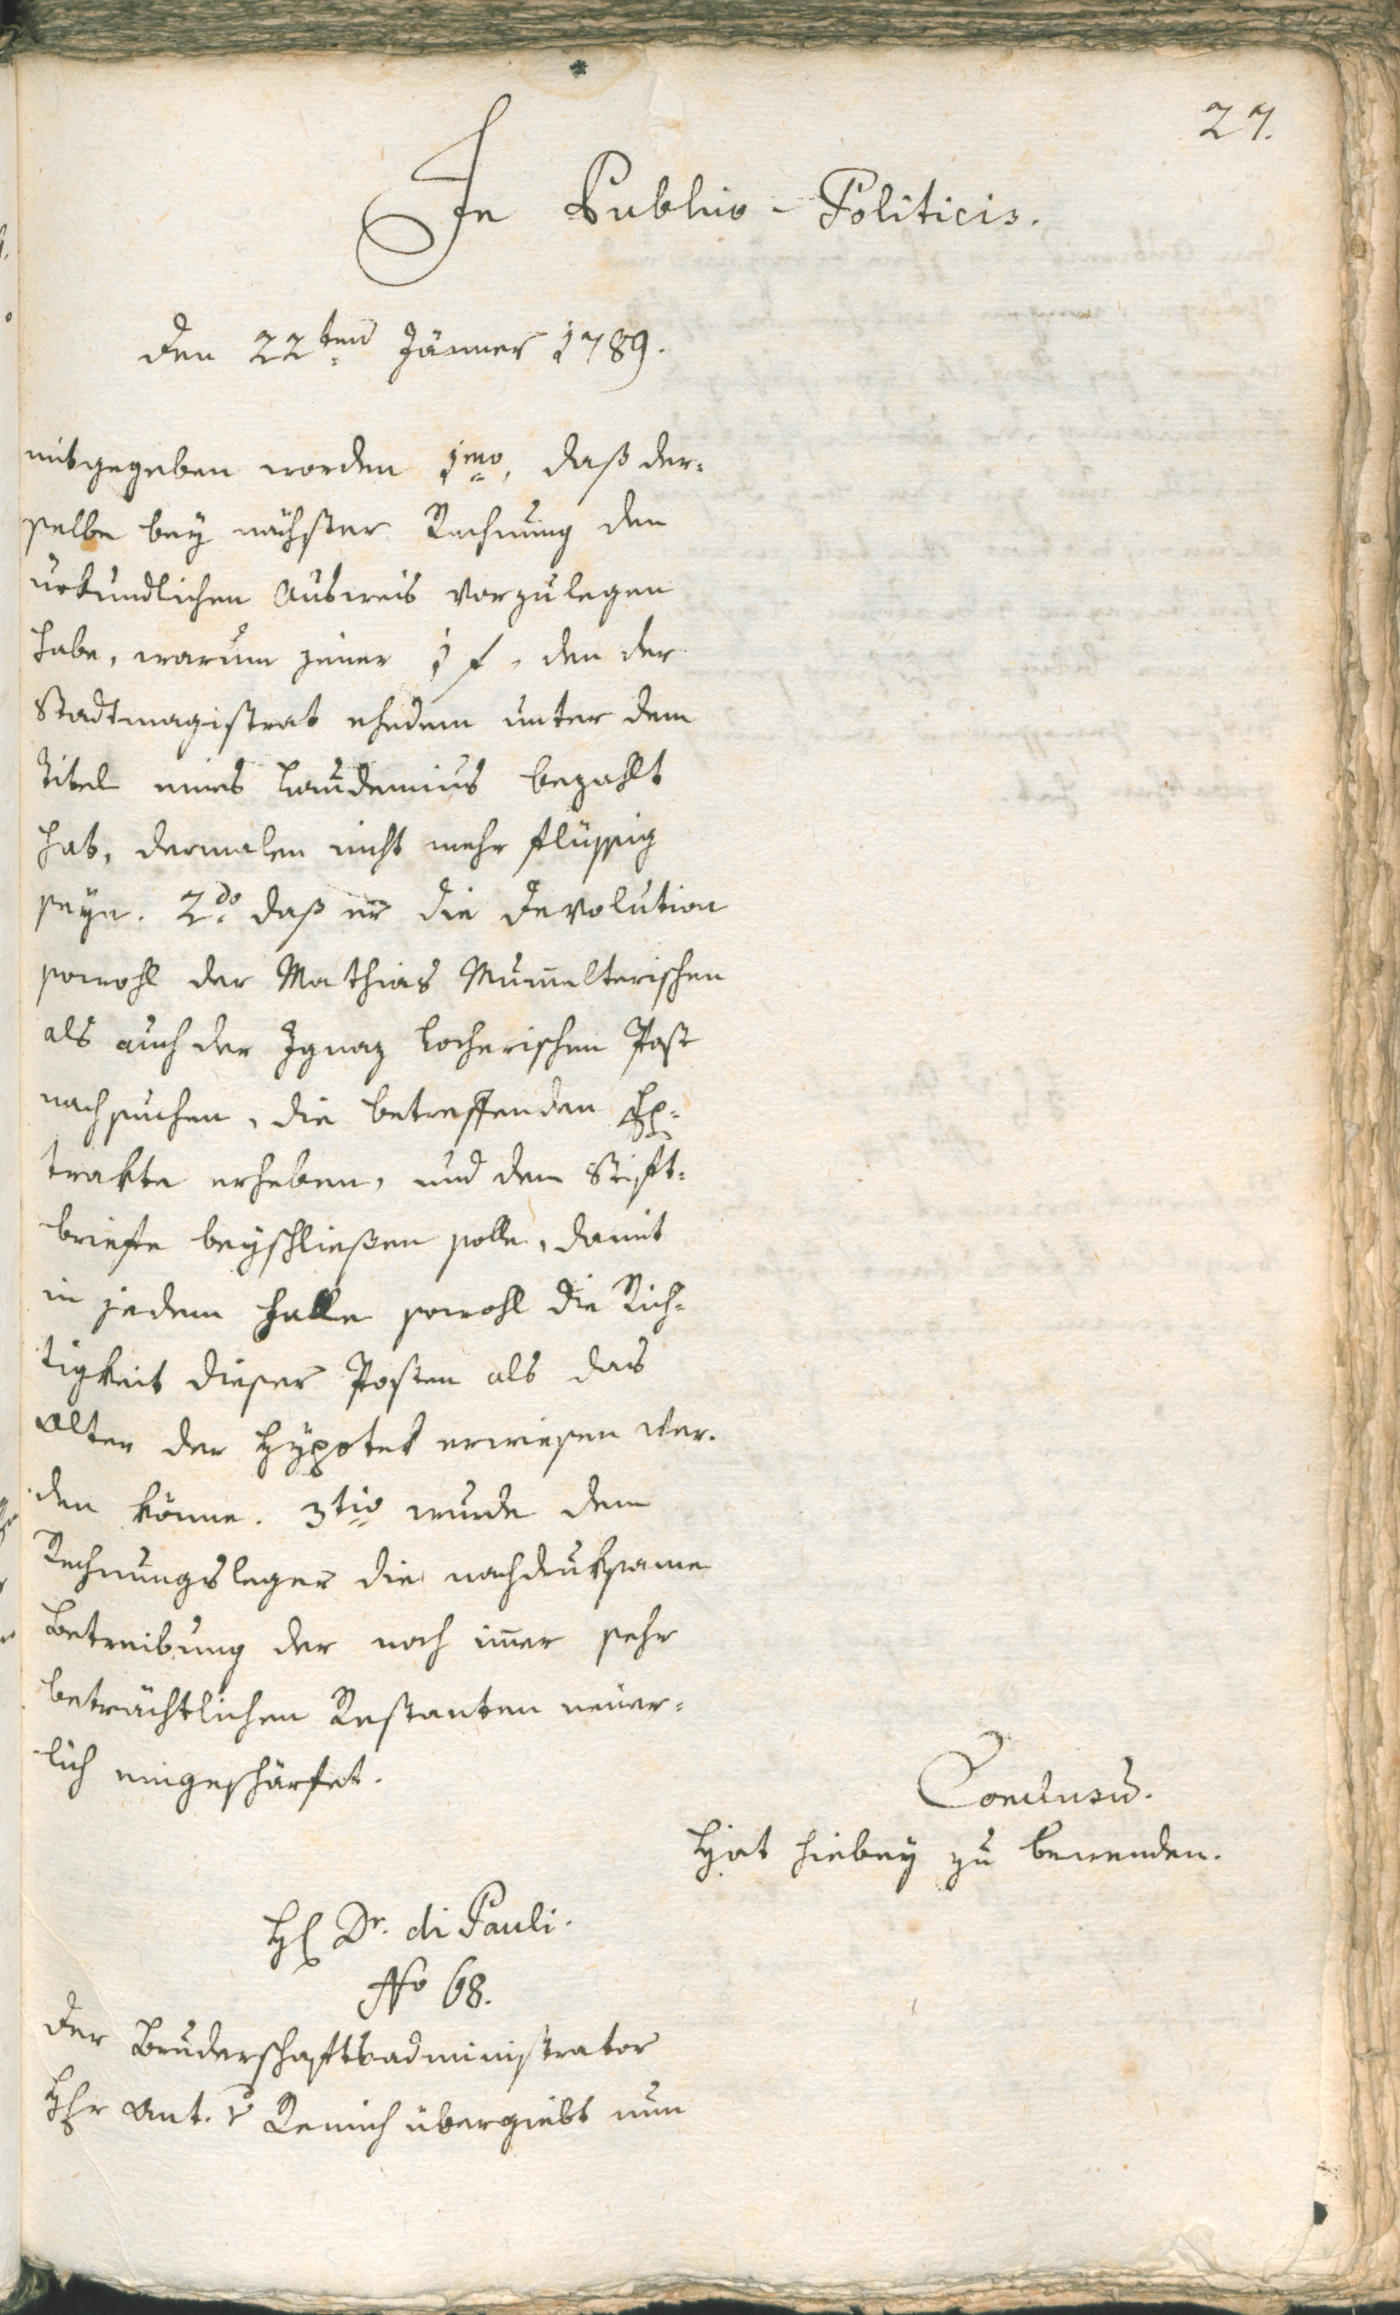 27.
In Publico-Politicis.
den 22ten Jänner 1789.
mitgegeben worden 1mo, daß der-
selbe bey nächster Rechnung den
urkundlichen Ausweis vorzulegen
habe, warum jener 1 f, den der
Stadtmagistrat ehedem unter dem
Titel eines Laudemiums bezahlt
hat, dermalen nicht mehr flüssig
seyn. 2do daß er die Devolution
sowohl der Mathias Mum̅elterischen
als auch der Ignaz Locherischen Post
nachsuchen, die betreffenden Ex-
trakte erheben, und dem Stift-
briefe beyschließen solle, damit
in jedem Falle sowohl die Rich-
tigkeit dieser Posten als das
Alter der Hypotek erwiesen wer-
den könne. 3tio wurde dem
Rechnungsleger die nachdruksame
Betreibung der noch im̅er sehr
beträchtlichen Restanten neuer-
lich eingeschärfet.
Conclusu̅.
Hat hiebey zu bewenden.
H Dr. di Pauli.
No 68.
Der Bruderschaftsadministrator
Hr Ant. v Remich übergiebt nun